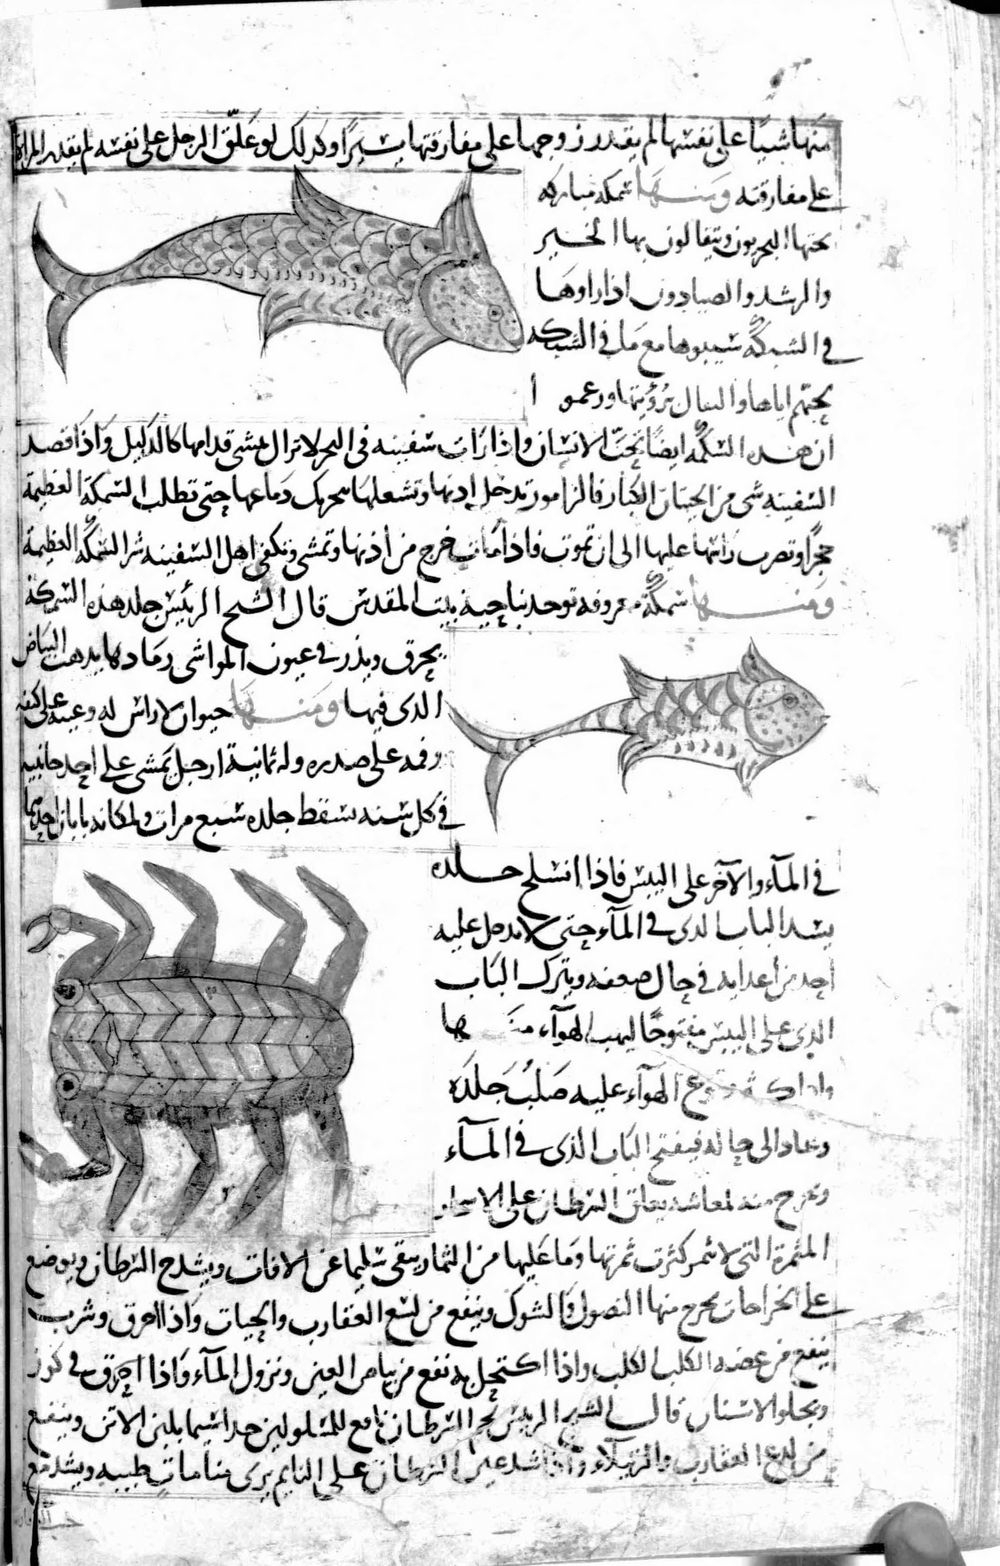 منها شيئا على نفسها لم يقدر زوجها على مفارقتها يسيرا وكذلك لو علق الرجل على نفسه لم يقدر المراة
على مفارقته ومنها سمكة مباركه
يحبها البحريون ويتفالون بها الخير
والرشد والصيادون اذا راوها
في الشبكة سيبوها مع ما في الشبكه
اياها والفال برؤيتها وزعموا
ان هذه السمكة ايضا تحب الانسان واذا رات سفينه في البحر لا تزال تمشي قدامها كالدليل واذا قصد
السفينه شي من الحيتان الكبار فالزامور تدخل اذنها وتشغلها بتحريك دماغها حتى تطلب السمكة العظيمة
حجرا وتضرب راسها عليها الى ان تموت فاذا ماتت خرج من اذنها وتمشي وتكفي اهل السفينه شر السمكة العظيمة
ومنها سمكة معروفه توجد بناحية بيت المقدس قال الشيخ الرئيس جلد هذه السمكة
يحرق ويذر في عيون المواشي رمادها يذهب البياض
الذي فيها ومنها حيوان لا راس له وعينه على كتفه
وفمه على صدره وله ثمانية ارجل يمشي على احد جانبيه
في كل سنه يسقط جلده سبع مرات ولمكانه بابان احدهما
في المآء والآخر على اليبس فاذا انسلخ جلده
يسد الباب الذي في المآء حتى لا يدخل عليه
احد من اعدايه في حال ضعفه ويترك الباب
الذي على اليبس مفتوحا ليهب الهوآء منها
واذا كثر وقوع الهوآء عليه صلب جلده
وعاد الى حاله فيفتح الباب الذي في المآء
وتخرج منه لمعاشه يعلق السرطان على الاشجار
المثمرة التي لا تثمر كثرت ثمرتها وما عليها من الثمار يبقى سليما عن الافات ويشدخ السرطان ويوضع
على الجراحات يخرج منها النصول والشوك وينفع من لسع العقارب والحيات واذا احرق وشرب
ينفع من عضه الكلب الكلب واذا اكتحل به نفع من بياض العين ونزول المآء واذا احرق في كوز
ويجلو الاسنان قال الشيخ الريس لحم السرطان نافع للمسلولين جدا سيما بلبن الاتن وينفع
من لدغ العقارب والرتيلآء واذا شد عين السرطان على النايم يرى منامات طيبه ويشد مع